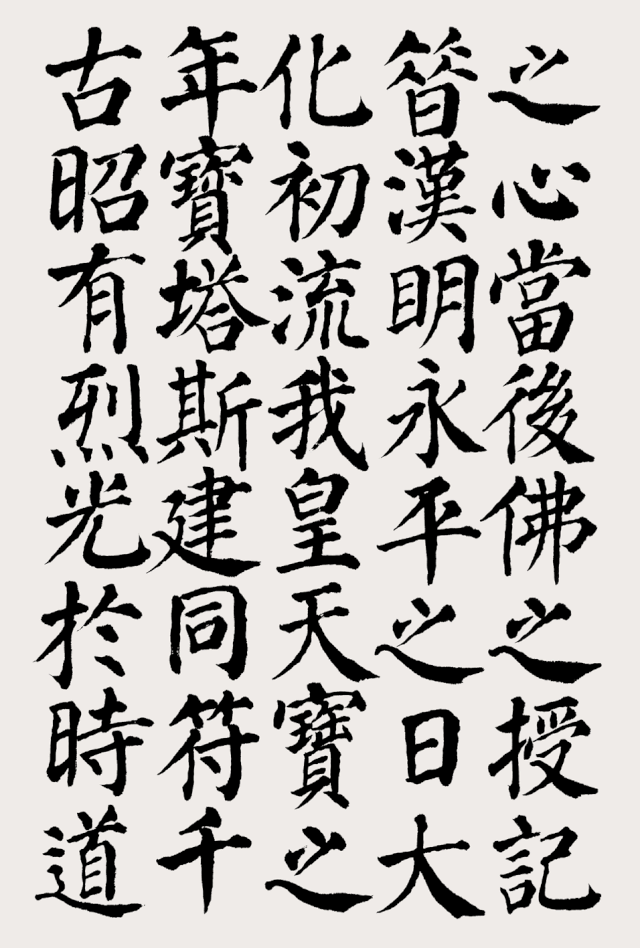 之心當後佛之授記
昔漢明永平之日大
化初流我皇天寶之
年寶塔斯建同符千
古昭有烈光於時道